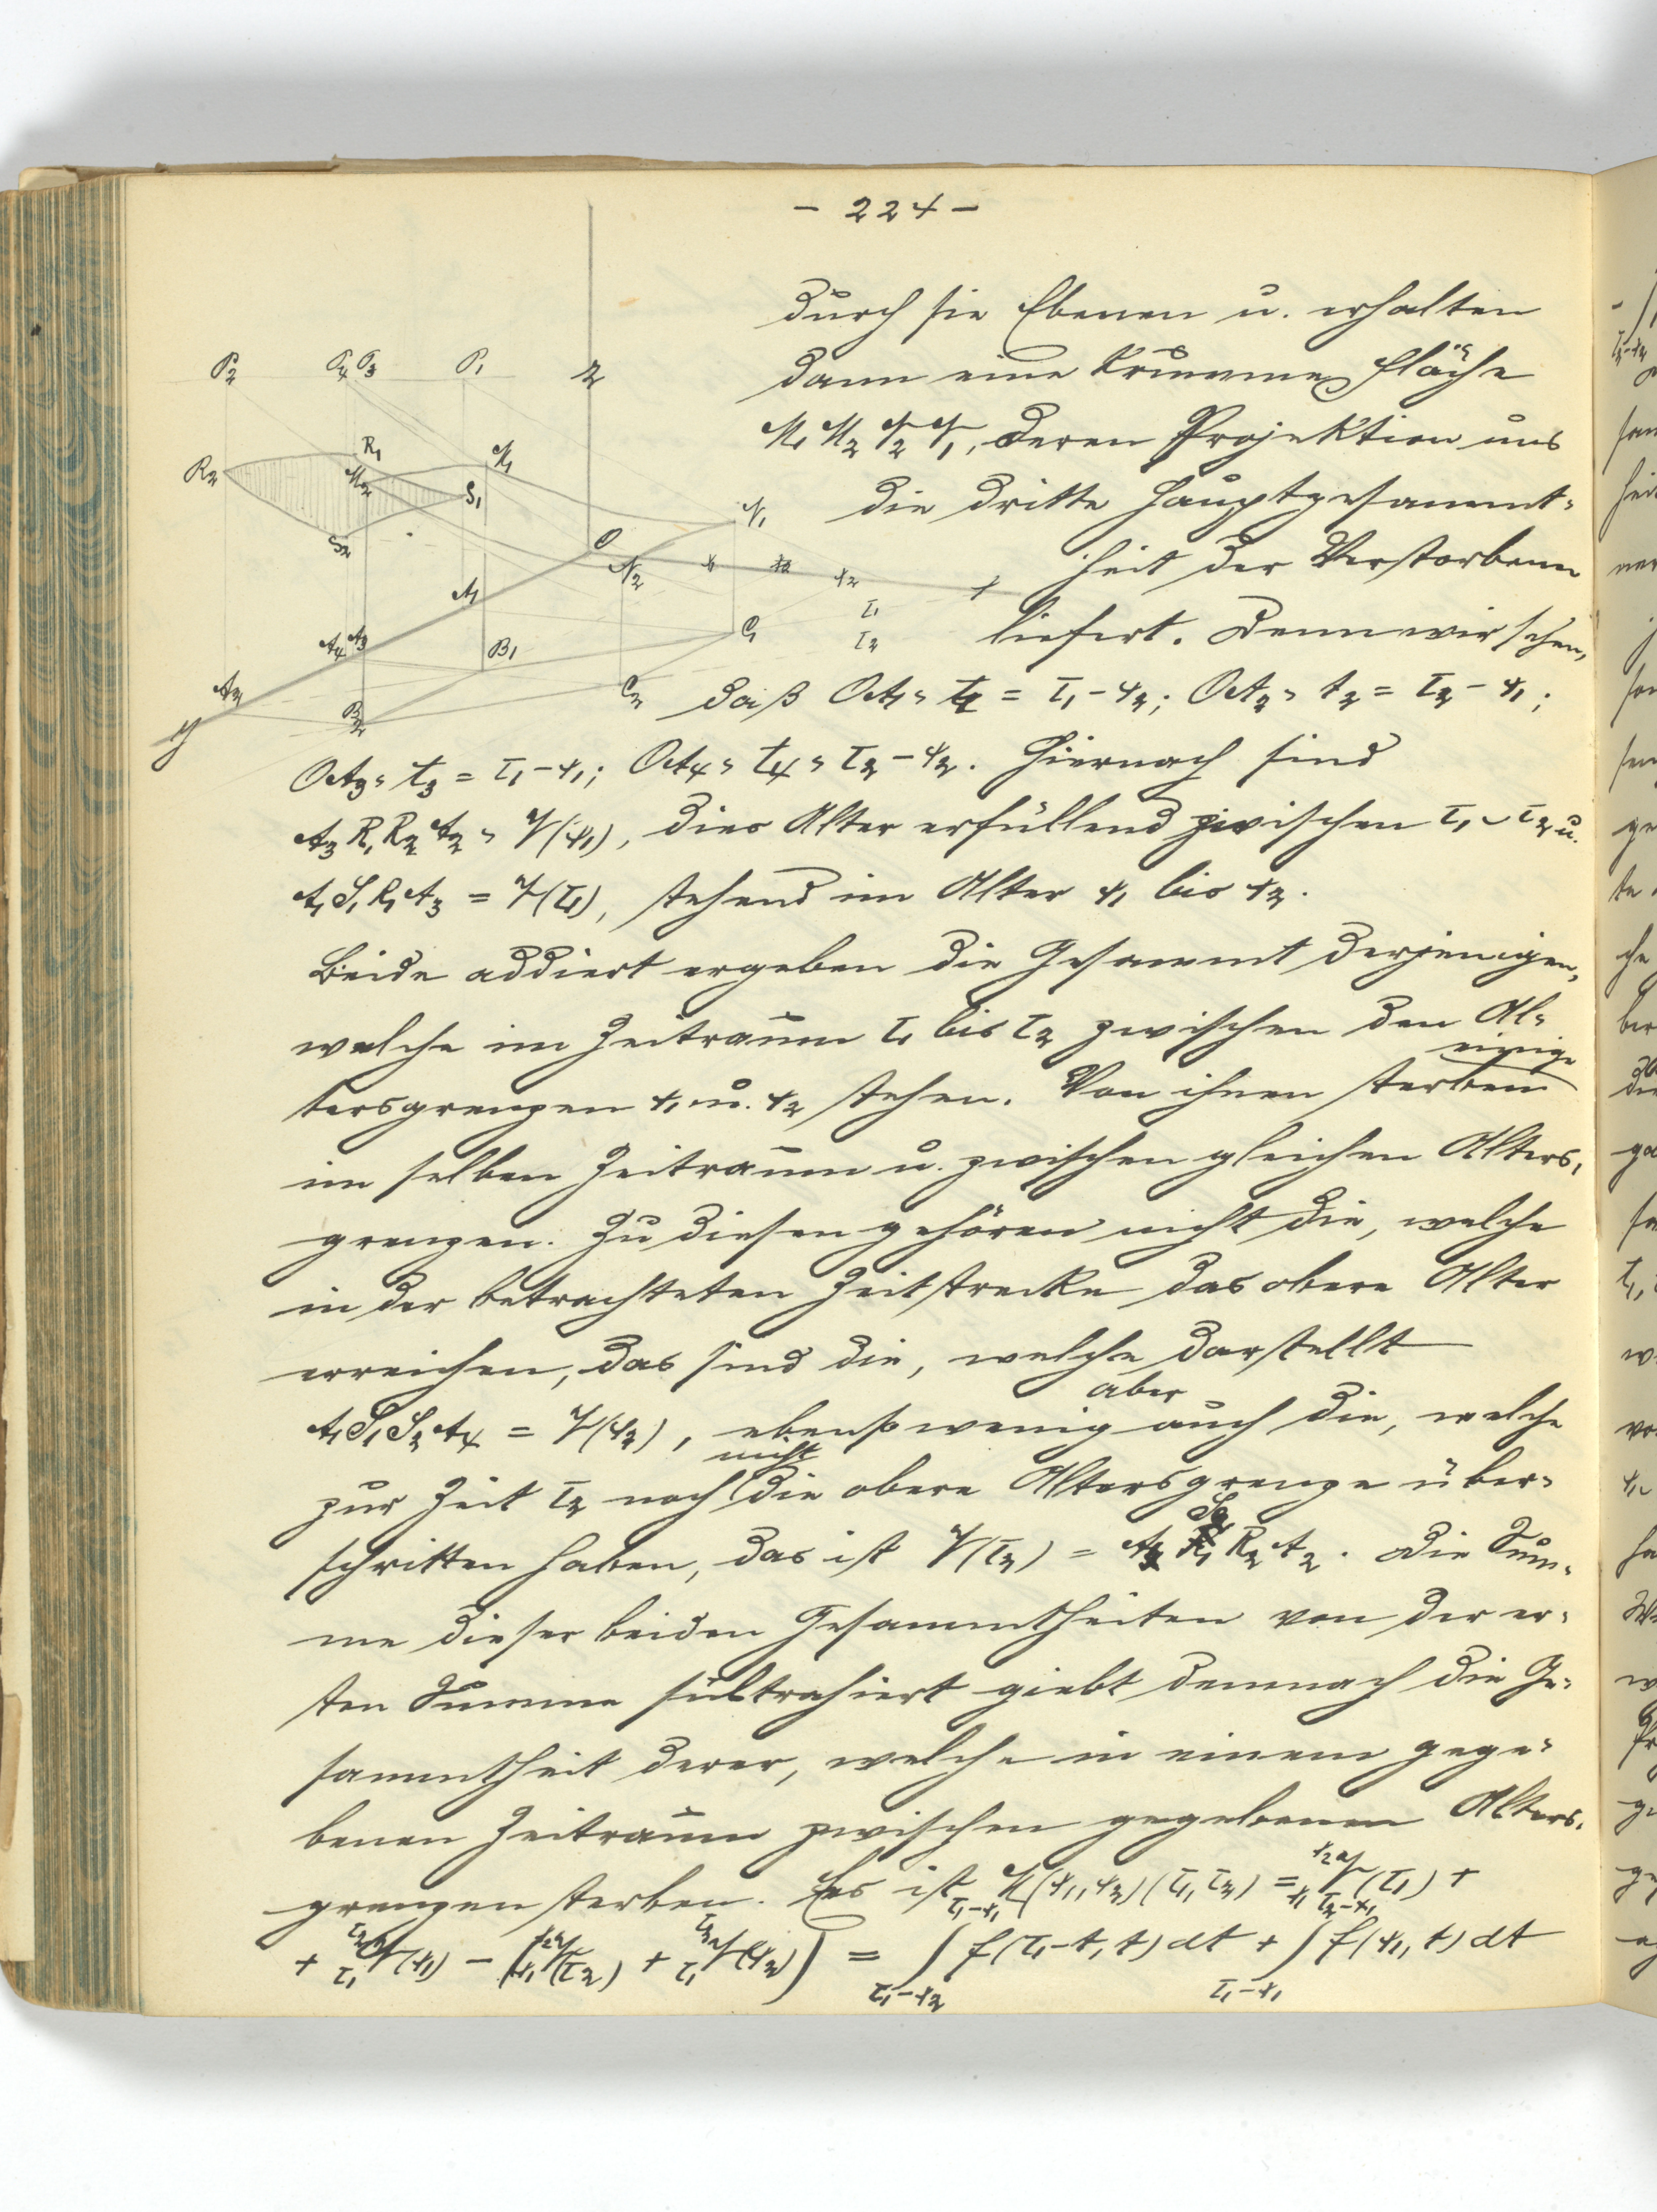 - 224 -
durch sie Ebenen u. erhalten
dann eine krumme Fläche
M₁ M₂ N₂ N₁, deren Projektion uns
die dritte Hauptgesammt-
heit der Verstorbenen
liefert. Denn wir sehen,
daß OA₁ = t₁ = τ₁ - x₂; OA₂ = t₂ = τ₂ - x₁;
OA₃ = t₃ = τ₁ - x₁; OA₄ = t₄ = τ₂ - x₂. Hiernach sind
A₃ R₁ R₂ A₂ = V(x₁), dies Alter erfüllend zwischen τ₁ ~ τ₂ u.
A₁ S₁ R₁ A₃ = V(τ₁), stehend im Alter x₁ bis x₂.
Beide addiert ergeben die Gesammt derjenigen,
welche im Zeitraum τ₁ bis τ₂ zwischen den Al-
einige
tersgrenzen x₁ u. x₂ stehen. Von ihnen sterben
im selben Zeitraum u. zwischen gleichen Alters-
grenzen. Zu diesen gehören nicht die, welche
in der betrachteten Zeitstrecke das obere Alter
erreichen, das sind die, welche darstellt
aber
A₁ S₁ S₂ A₄ = V(x₂), ebensowenig auch die, welche
nicht
zur Zeit τ₂ noch die obere Altersgrenze über-
schritten haben, das ist V(τ₂) = A₄ S₂ R₂ A₂. Die Sum-
me dieser beiden Gesammtheiten von der er-
sten Summe subtrahiert giebt demnach die Ge-
sammtheit derer, welche in einem gege-
benen Zeitraum zwischen gegebenen Alters-
grenzen sterben. Es ist M(x₁, x₂)(τ₁, τ₂) = V(τ₁) +
+ V(x₁) - (V(τ₂) + V(x₂)) = ∫ f(τ₁-t, t) dt + ∫ f(x₁, t) dt
P₂ P₄ P₃ P₁ z
R₂ R₁ M₂ M₁ S₁ N₁
S₂ O N₂ x₁ x₂ x
A₁ τ₁
A₄ A₃ B₁ C₁ τ₂
A₂ B₂ C₂
y